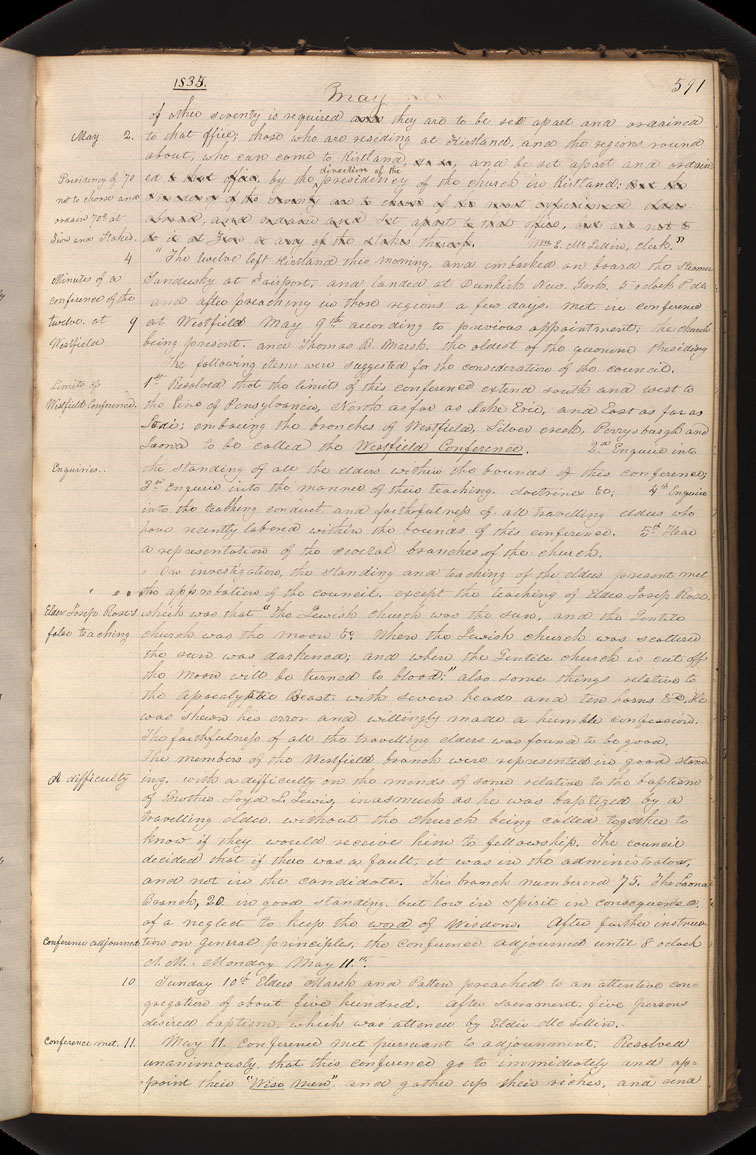 1835.
May
591
of other seventy is required and they are to be set apart and ordained
May 2.
to that office; those who are residing at Kirtland, and the regions round
about, who can come to Kirtland, and be set apart and ordain
Presidency of 70
not to choose and
ordain 70s at
Zion and Stakes.
direction of the
ed to that office, by the presidency of the church in Kirtland;
Wm E. Mc Lellin, clerk."
4
"The twelve left Kirtland this morning, and embarked on board the Steamer
Minutes of a
conference of the
twelve. at 9
Westfield
Sandusky at Fairport, and landed at Dunkirk New York. 5 o'clock P.M.
and after preaching in those regions a few days, met in conference
at Westfield May 9th according to previous appointment; the church
being present. and Thomas B. Marsh. the oldest of the quorum Presiding
The following items were suggested for the consideration of the council.
Limits of
Westfield Conference.
1st Resolved that the limits of this conference extend south and west to
the line of Pensylvania, North as far as Lake Erie, and East as far as
Lodi; embracing the branches of Westfield, Silver creek, Perrysburgh and
Laona to be called the Westfield Conference. 2nd Enquire into
Enquiries..
the standing of all the elders within the bounds of this conference;
3rd Enquire into the manner of their teaching. doctrine &c, 4th Enquire
into the teaching conduct and faithfulness of all travelling elders who
have recently labored within the bounds of this conference. 5th Hear
a representation of the several branches of the church.
On investigation, the standing and teaching of the elders present met
the approbation of the council. except the teaching of Elder Joseph Rose.
Elder Joseph Rose's
false teaching
which was that "the Jewish church was the sun, and the Gentile
church was the moon &c, When the Jewish church was scattered
the sun was darkened; and when the Gentile church is cut off
the moon will be turned to blood:" also some things relative to
the Apocalyptic Beast. with seven heads and ten horns &c. He
was shewn his error and willingly made a humble confession.
The faithfulness of all the travelling elders was found to be good.
The members of the Westfield branch were represented in good stand
A difficulty
ing. with a difficulty on the minds of some relative to the baptism
of Brother Loyd L. Lewis, inasmuch as he was baptized by a
travelling elder without the church being called together to
know if they would receive him to fellowship. The council
decided that if there was a fault, it was in the administrator,
and not in the candidate. This branch numbered 75. The Laona
Branch, 20 in good standing. but low in spirit in consequence
of a neglect to keep the word of Wisdom. After further instruc
Conference adjourned
tion on general principles, the conference adjourned until 8 oclock
A.M. Monday May 11th.
10
Sunday 10th Elders Marsh and Patten preached to an attentive con=
gregation of about five hundred. After sacrament, five persons
desired baptism, which was attended by Elder Mc Lellin.
Conference met. 11.
May 11. Conference met pursuant to adjournment. Resolved
unanimously, that this conference go to immediately and ap=
point their "Wise Men" and gather up their riches, and send